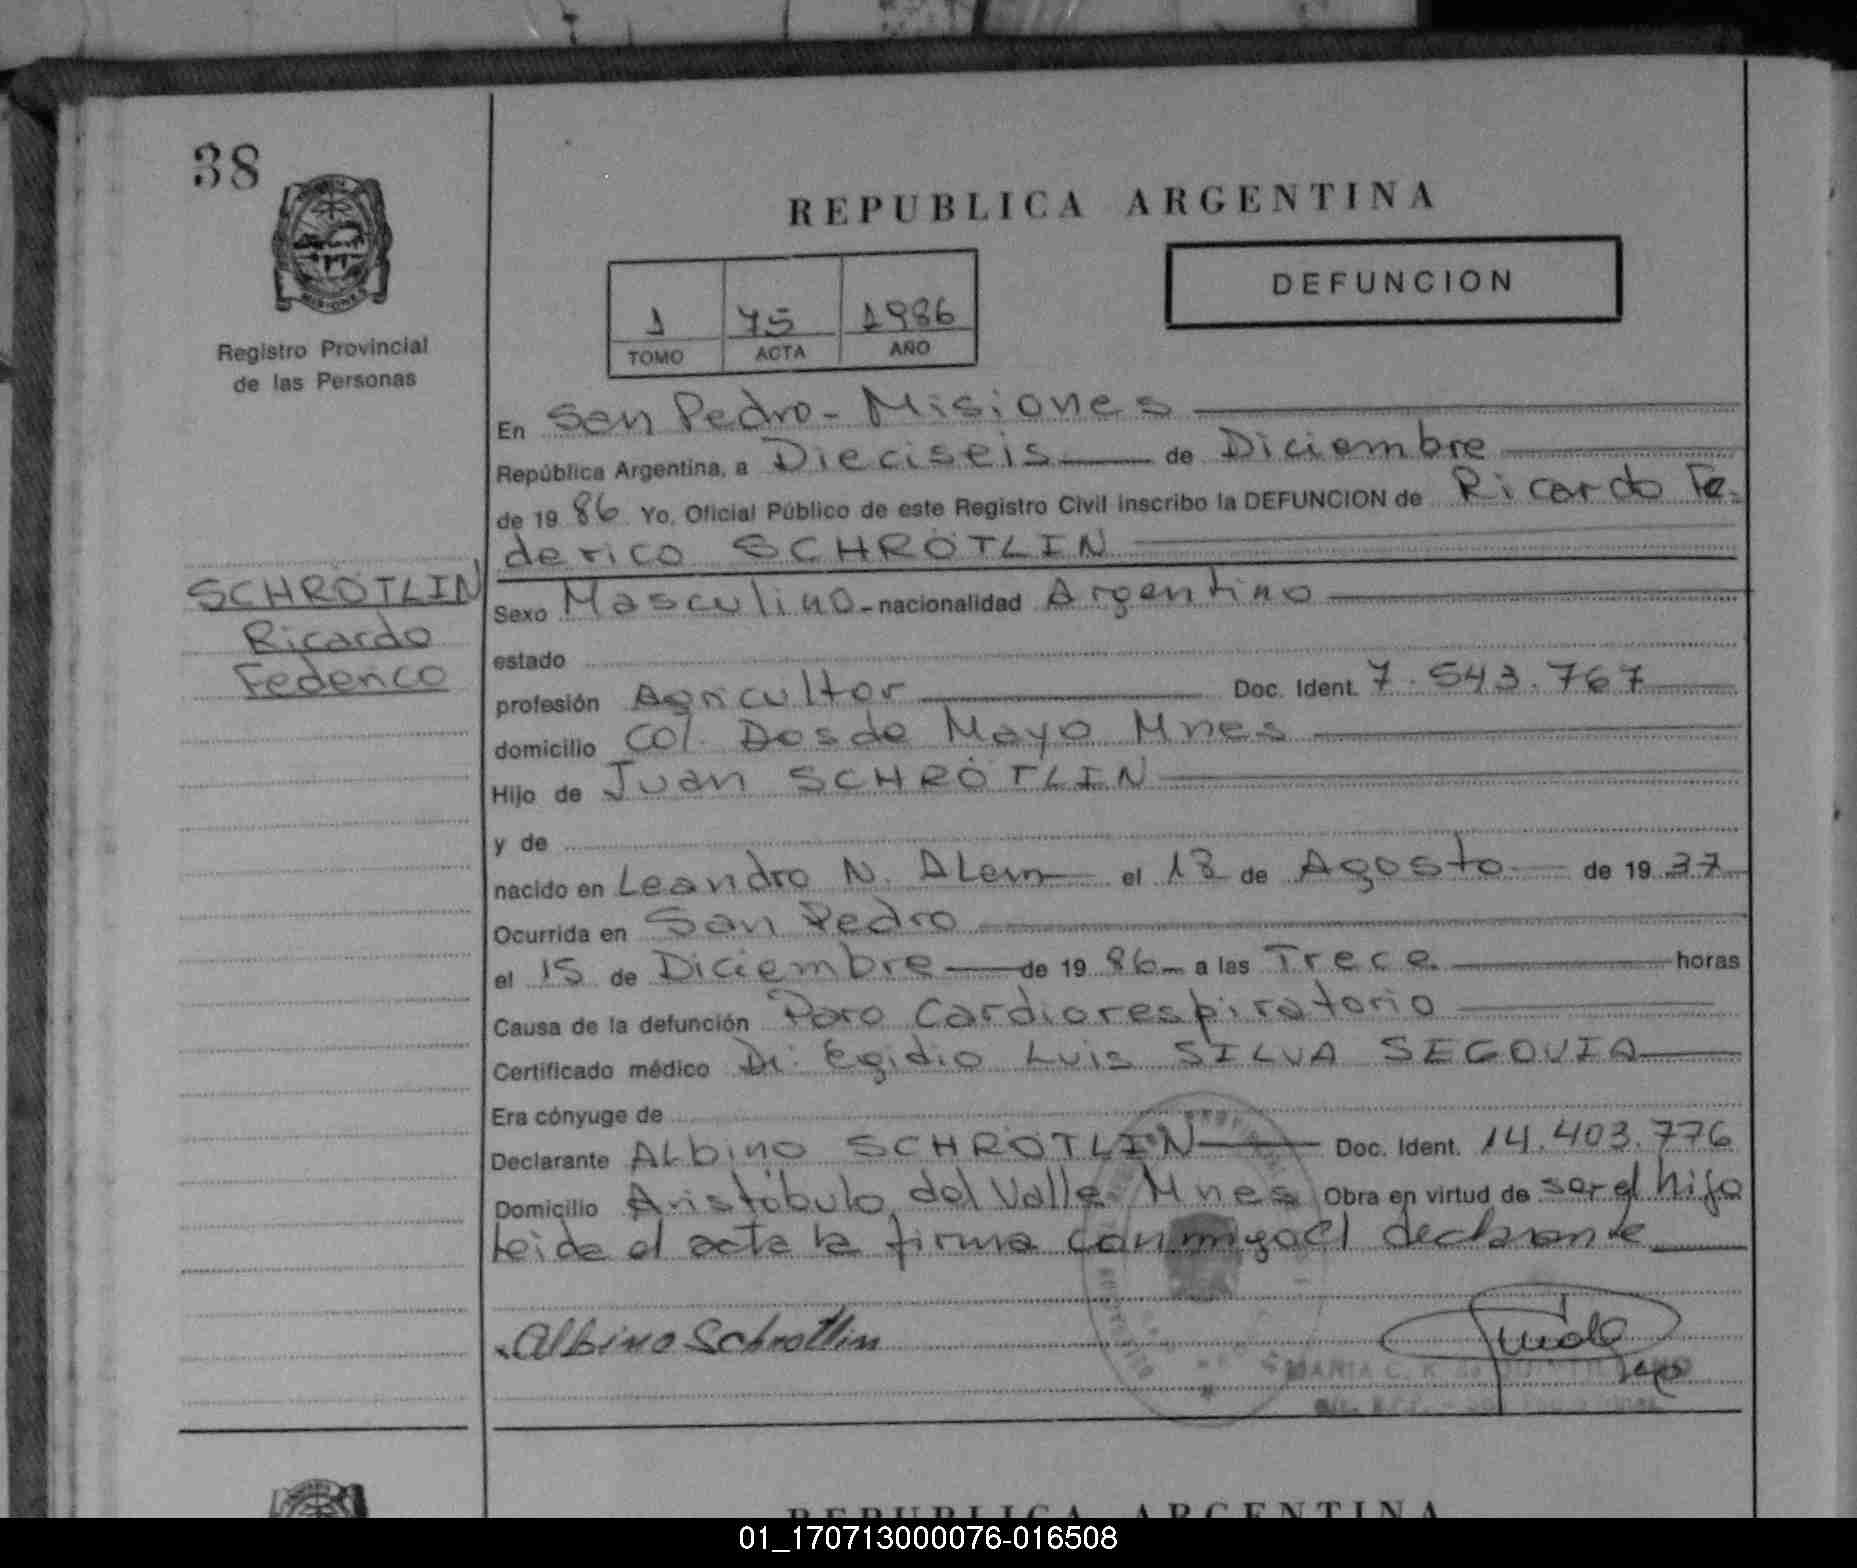 38
MISIONES
Registro Provincial
de las Personas
REPUBLICA ARGENTINA
1 75 1986
TOMO ACTA AÑO
DEFUNCION
En San Pedro - Misiones
República Argentina, a Dieciseis de Diciembre
de 19 86 Yo, Oficial Público de este Registro Civil inscribo la DEFUNCION de Ricardo Fe-
derico SCHRÖTLIN
SCHRÖTLIN
Ricardo
Federico
Sexo Masculino - nacionalidad Argentino
estado
profesión Agricultor Doc. Ident. 7.543.767
domicilio Col. Dos de Mayo Mnes
Hijo de Juan SCHRÖTLIN
y de
nacido en Leandro N. Alem el 18 de Agosto de 19 37
Ocurrida en San Pedro
el 15 de Diciembre de 19 86 a las Trece horas
Causa de la defunción Paro Cardiorespiratorio
Certificado médico Dr. Egidio Luis SILVA SEGOVIA
Era cónyuge de
Declarante Albino SCHRÖTLIN Doc. Ident. 14.403.776
Domicilio Aristóbulo del Valle Mnes Obra en virtud de ser el hijo
leida el acta la firma conmigo el declarante
Albino Schrotlin
MARIA C. R.
REPUBLICA ARGENTINA
01_170713000076-016508